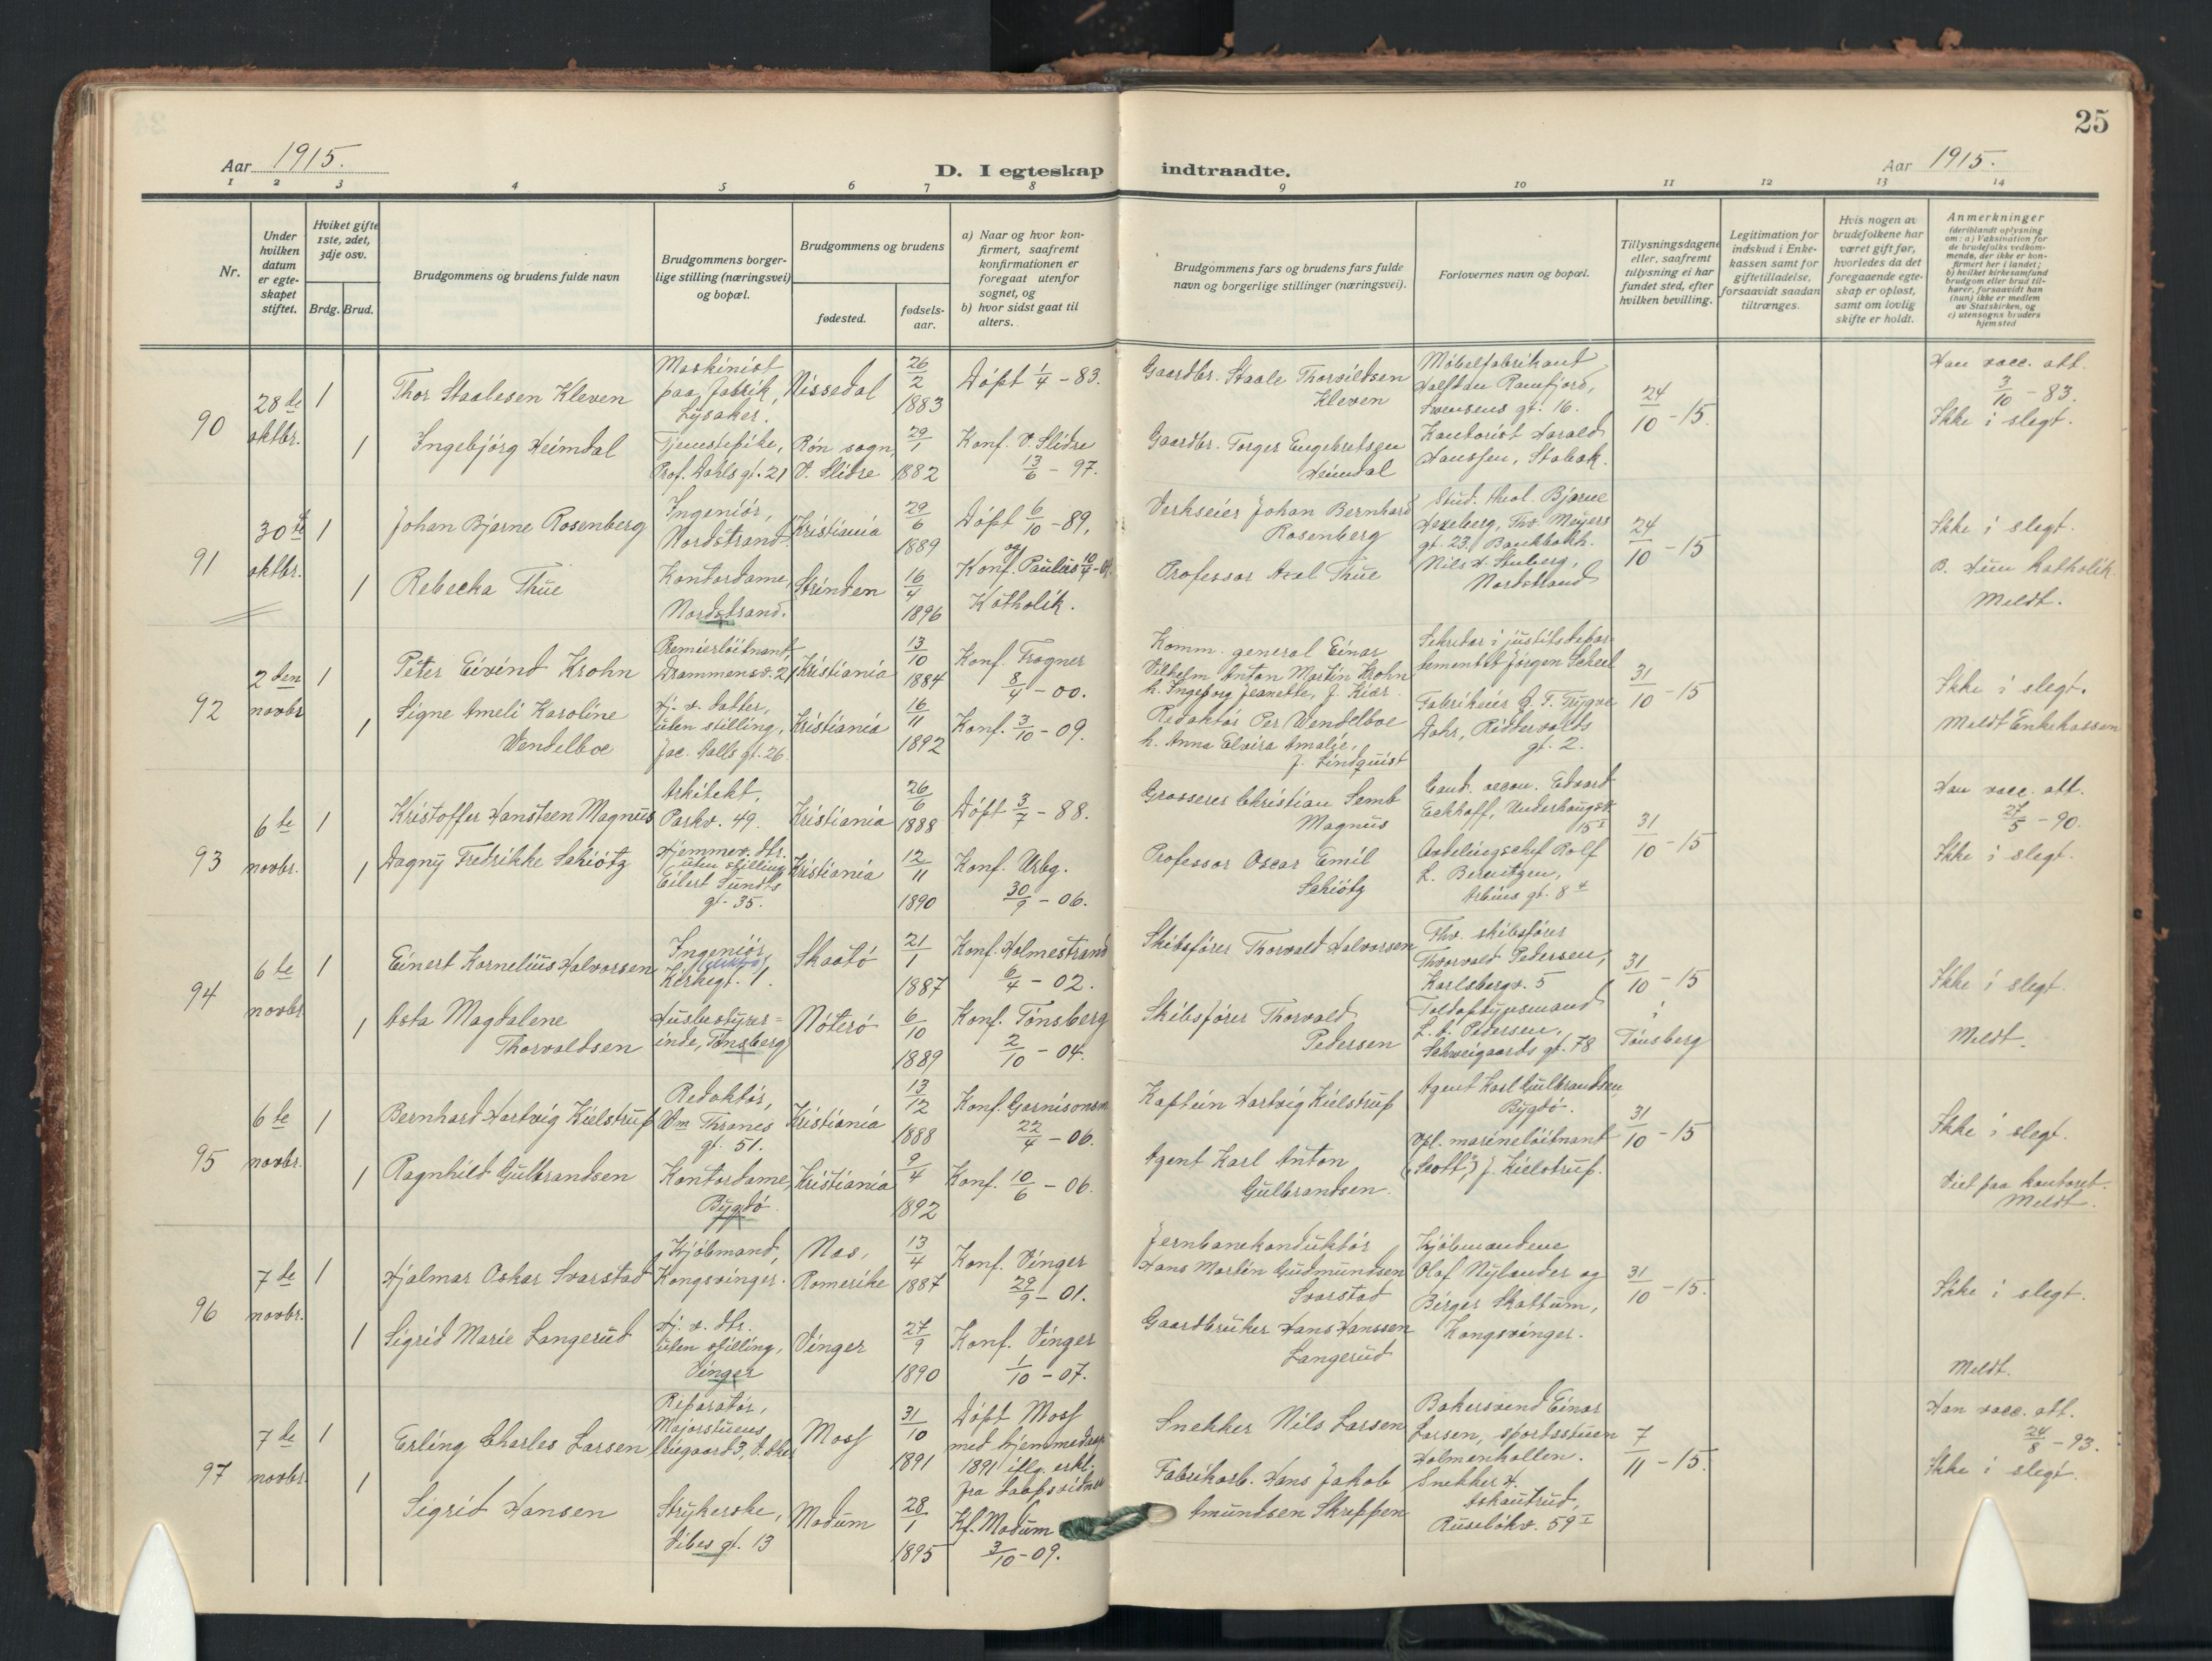 25
Aar 1915.
D. I egteskap indtraadte.
Aar 1915.
1 2 3 4 5 6 7 8 9 10 11 12 13 14
Nr.
Under
hvilken
datum
er egte-
skapet
stiftet.
Hviket gifte
1ste, 2det,
3dje osv.
Brdg. Brud.
Brudgommens og brudens fulde navn
Brudgommens borger-
lige stilling (næringsvei)
og bopæl.
Brudgommens og brudens
fødested.
fødsels-
aar.
a) Naar og hvor kon-
firmert, saafremt
konfirmationen er
foregaat utenfor
sognet, og
b) hvor sidst gaat til
alters.
Brudgommens fars og brudens fars fulde
navn og borgerlige stillinger (næringsvei).
Forlovernes navn og bopæl.
Tillysningsdagene
eller, saafremt
tillysning ei har
fundet sted, efter
hvilken bevilling.
Legitimation for
indskud i Enke-
kassen samt for
giftetilladelse,
forsaavidt saadan
tiltrænges.
Hvis nogen av
brudefolkene har
været gift før,
hvorledes da det
foregaaende egte-
skap er opløst,
samt om lovlig
skifte er holdt.
Anmerkninger
(deriblandt oplysning
om: a) Vaksination for
de brudefolks vedkom-
mende, der ikke er kon-
firmert her i landet;
b) hvilket kirkesamfund
brudgom eller brud til-
hører, forsaavidt han
(hun) ikke er medlem
av Statskirken, og
c) utensogns bruders
hjemsted
90
28de
oktbr.
1
Thor Staalesen Kleven
Maskinist
paa fabrik,
Lysaker.
Nissedal
26/2
1883
Døpt 1/4 - 83.
Gaardbr. Staale Thorvildsen
Kleven
Møbelfabrikant
Halfdan Ramfjord,
Svensens gt. 16.
24/10 - 15.
Han vacc. att.
3/10 - 83.
Ikke i slegt.
1
Ingebjörg Heimdal
Tjenestepike,
Prof. Dahls gt. 21
Røn sogn,
V. Slidre
29/1
1882
Konf. V. Slidre
13/6 - 97.
Gaardbr. Torger Engebretsen
Heimdal
Kontorist Harald
Hanssen, Stabæk.
91
30te
oktbr.
1
Johan Bjarne Rosenberg
Ingeniör,
Nordstrand.
Kristiania
29/6
1889
Døpt 6/10 - 89,
og
Konf. Paulus 10/4 - 04.
Verkseier Johan Bernhard
Rosenberg
Stud. theol. Bjarne
Hexeberg, Thv. Meyers
gt. 23. Bankbokh.
Nils H. Stuberg,
Nordstrand
24/10 - 15
Ikke i slegt.
1
Rebecka Thue
Kontordame,
Nordstrand.
Strinden
16/4
1896
Katholik.
Professor Axel Thue
B. Hun katholik.
Meldt.
92
2den
novbr
1
Peter Eivind Krohn
Premierlöitnant,
Drammensv. 21
Kristiania
13/10
1884
Konf. Frogner
8/4 - 00.
Komm. general Einar
Vilhelm Anton Martin Krohn
h. Ingeborg Jeanette, f. Kiær.
Sekretær i justitsdepar-
tementet Jörgen Scheel
31/10 - 15
Ikke i slegt.
1
Signe Ameli Karoline
Wendelboe
Hj. v. datter,
uten stilling,
Jac. Aalls gt. 26
Kristiania
16/11
1892
Konf. 3/10 - 09.
Redaktör Per Wendelboe
h. Anna Elvira Amalie,
f. Lindquist
Fabrikeier T. Trygve
Dahr, Riddervolds
gt. 2.
Meldt Enkekassen
93
6te
novbr.
1
Kristoffer Hansteen Magnus
Arkitekt,
Parkv. 49.
Kristiania
26/6
1888
Døpt 3/7 - 88.
Grosserer Christian Semb
Magnus
Cand. oecon. Edvard
Eckhoff, Underhaugsv.
15 I
31/10 - 15
Han vacc. att.
27/5 - 90.
1
Dagny Fredrikke Schiötz
Hjemmev. dtr.
uten stilling,
Eilert Sundts
gt. 35.
Kristiania
12/11
1890
Konf. Urbg.
30/9 - 06.
Professor Oscar Emil
Schiötz
Avdelingschef Rolf
L. Berntzen,
Arbins gt. 8 4
Ikke i slegt.
94
6te
novbr
1
Einert Kornelius Halvorsen
Ingeniör
Kirkegt. 1.
Skaatö
21/1
1887
Konf. Holmestrand
6/4 - 02.
Skibsförer Thorvald Halvorsen
Fhv. skibsförer
Thorvald Pedersen,
Karlsbergv. 5
31/10 - 15
Ikke i slegt.
1
Asta Magdalene
Thorvaldsen
Husbestyrer-
inde, Tønsberg
Nöterö
6/10
1889
Konf. Tønsberg
2/10 - 04.
Skibsförer Thorvald
Pedersen
Toldopsynsmand
L. A. Pedersen,
Schweigaards gt. 78
i
Tønsberg
Meldt.
95
6te
novbr.
1
Bernhard Hartvig Kielstrup
Redaktör,
Vm. Thranes
gt. 51.
Kristiania
13/12
1888
Konf. Garnisonsm
22/4 - 06.
Kaptein Hartvig Kielstrup
Agent Karl Gulbrandsen,
Bygdö.
31/10 - 15
Ikke i slegt.
1
Ragnhild Gulbrandsen
Kontordame,
Bygdö.
Kristiania
9/4
1892
Konf. 10/6 - 06.
Agent Karl Anton
Gulbrandsen.
Vpl. marinelöitnant
("Scott") J. Kielstrup.
Viet paa kontoret.
Meldt.
96
7de
novbr.
1
Hjalmar Oskar Svarstad
Kjöbmand,
Kongsvinger.
Nes,
Romerike
13/4
1887
Konf. Vinger
29/9 - 01.
Jernbanekonduktör
Hans Martin Gudmundsen
Svarstad
Kjöbmændene
Olaf Nylander og
Birger Skattum,
Kongsvinger.
31/10 - 15.
Ikke i slegt.
1
Sigrid Marie Langerud
Hj. v. dtr.
uten stilling,
Vinger
Vinger
27/9
1890
Konf. Vinger
1/10 - 07.
Gaardbruker Hans Hanssen
Langerud
Meldt.
97
7de
novbr.
1
Erling Charles Larsen
Reparatör,
Majorstuens
Moss
31/10
1891
Døpt Moss
med hjemmedaap
1891 iflg. erkl.
fra daapsvidner
Snekker Nils Larsen
Bakersvend Einar
Larsen, sportsstuen
Holmenkollen.
7/11 - 15.
Han vacc. att.
24/8 - 93.
Ikke i slegt.
1
Sigrid Hansen
Strykerske,
Vibes gt. 13
Modum
28/1
1895
Kf. Modum
3/10 - 09.
Fabrikarb. Hans Jakob
Amundsen Skreppen
Snekker H.
Askautrud,
Ruselökv. 59 I